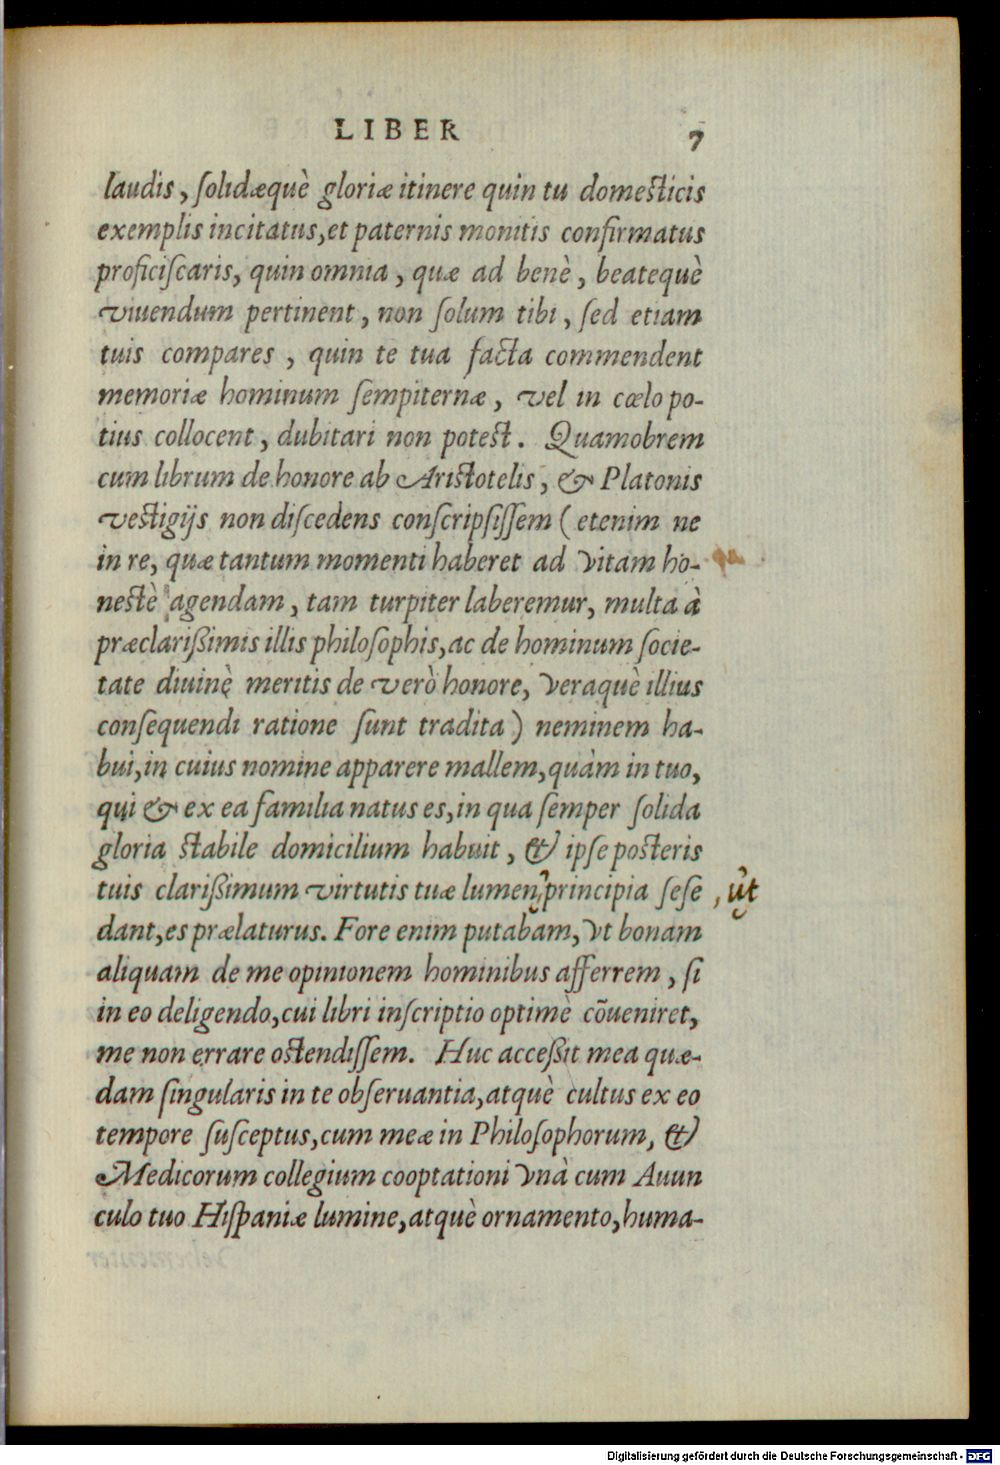 LIBER 7
laudis, ſolidæquè gloriæ itinere quin tu domeſticis
exemplis incitatus, et paternis monitis confirmatus
proficiſcaris, quin omnia, quæ ad benè, beatequè
viuendum pertinent, non ſolum tibi, ſed etiam
tuis compares, quin te tua facta commendent
memoriæ hominum ſempiternæ, vel in cœlo po-
tius collocent, dubitari non poteſt. Quamobrem
cum librum de honore ab Ariſtotelis, & Platonis
veſtigijs non diſcedens conſcripſiſſem (etenim ne
in re, quæ tantum momenti haberet ad vitam ho-
neſtè agendam, tam turpiter laberemur, multa à
præclarißimis illis philoſophis, ac de hominum ſocie-
tate diuinę meritis de verò honore, veraquè illius
conſequendi ratione ſunt tradita) neminem ha-
bui, in cuius nomine apparere mallem, quàm in tuo,
qui & ex ea familia natus es, in qua ſemper ſolida
gloria ſtabile domicilium habuit, & ipſe poſteris
tuis clarißimum virtutis tuæ lumen, principia ſeſe , ut
dant, es prælaturus. Fore enim putabam, vt bonam
aliquam de me opinionem hominibus afferrem, ſi
in eo deligendo, cui libri inſcriptio optimè cõueniret,
me non errare oſtendiſſem. Huc acceßit mea quæ-
dam ſingularis in te obſeruantia, atquè cultus ex eo
tempore ſuſceptus, cum meæ in Philoſophorum, &
Medicorum collegium cooptationi vnà cum Auun
culo tuo Hiſpaniæ lumine, atquè ornamento, huma-
Digitalisierung gefördert durch die Deutsche Forschungsgemeinschaft - DFG